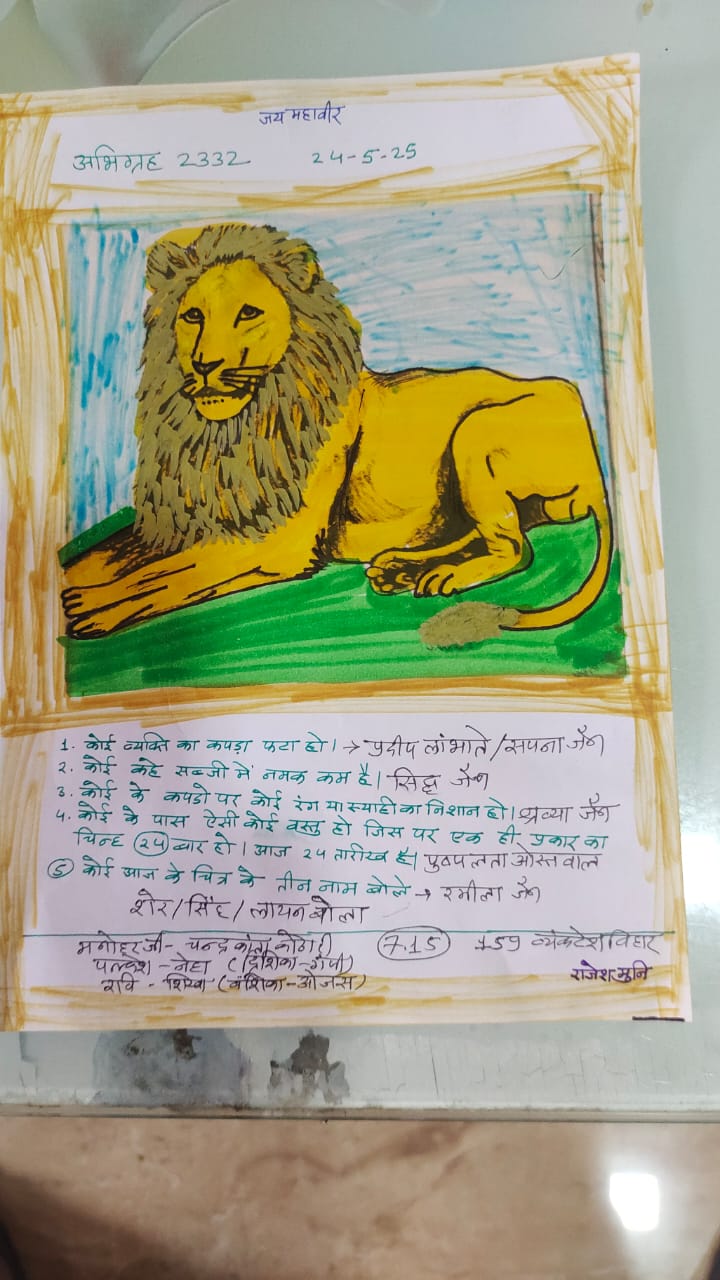 जय महावीर
अभिग्रह 2332 24-5-25
1. कोई व्यक्ति का कपड़ा फटा हो। → प्रदीप लांभाते / सपना जैन
2. कोई कहे सब्जी में नमक कम है। सिद्धा जैन
3. कोई के कपडो पर कोई रंग या स्याही का निशान हो। श्रव्या जैन
4. कोई के पास ऐसी कोई वस्तु हो जिस पर एक ही प्रकार का
चिन्ह 24 बार हो। आज 24 तारीख है। पुष्पलता ओस्तवाल
5 कोई आज के चित्र के तीन नाम बोले → रमीला जैन
शेर/सिंह/लायन बोला
मनोहरजी - चन्द्रकांता कोठारी 7.15 159 व्यंकटेश विहार
पल्केश - नेहा
रवि - शिखा (वंशिका - ओजस) राजेश मुनि